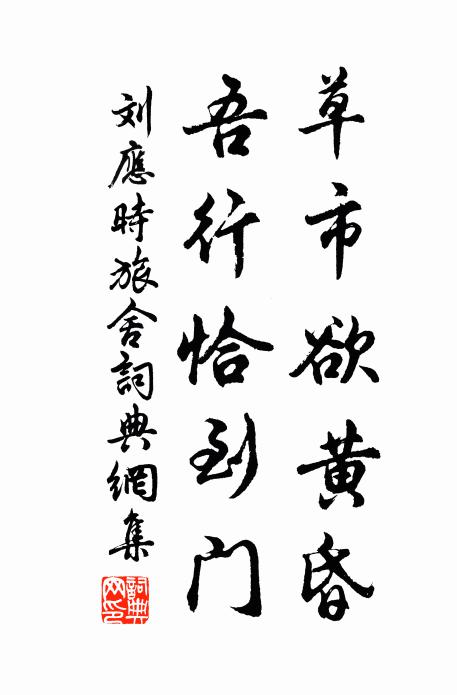 草市欲黄昏
吾行恰到门
刘應時旅舍詞典網集
詞典网印